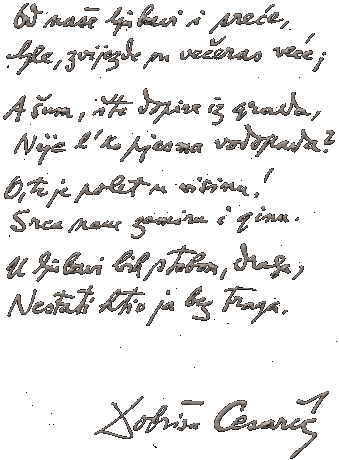 Od naše ljubavi i sreće,
Gle, zvijezde su večeras veće;
A šum, što dopire iz grada,
Nije l' k'o pjesma vodopada?
O, to je polet u visinu!
Srca nam zamiru i ginu.
U ljubavi bih s tobom, draga,
Nestati htio ja bez traga.
Dobriša Cesarić